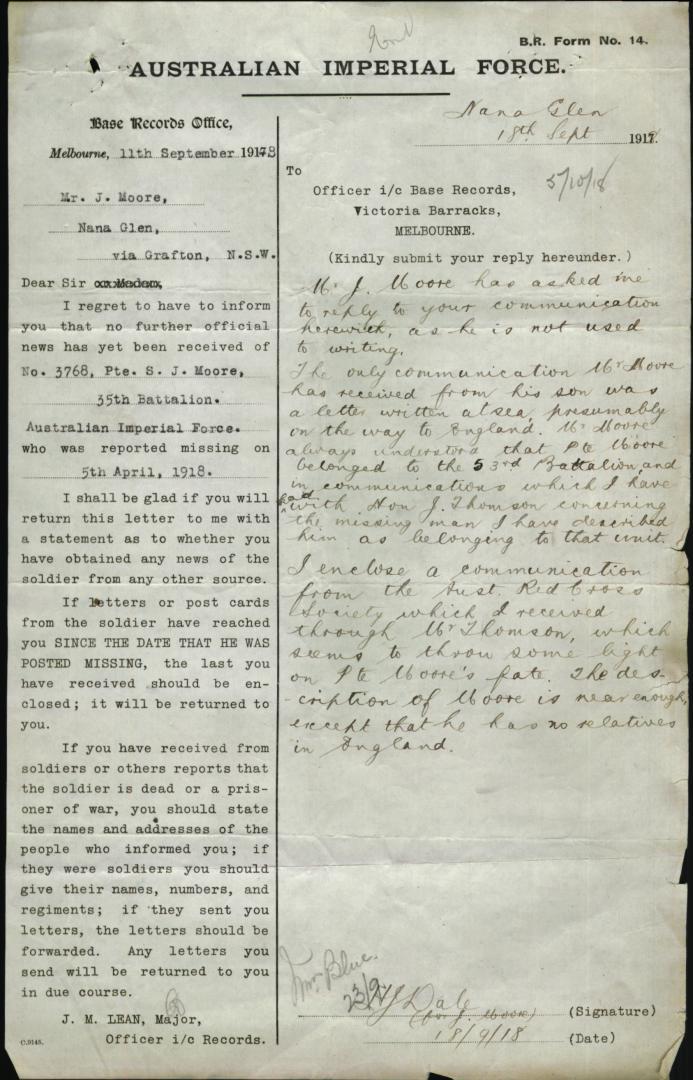 B.R. Form No. 14.
AUSTRALIAN IMPERIAL FORCE.
Base Records Office,
Melbourne, 11th September 1918
Mr. J. Moore,
Nana Glen,
via Grafton, N.S.W.
Dear Sir or Madam,
I regret to have to inform
you that no further official
news has yet been received of
No. 3768, Pte. S. J. Moore,
35th Battalion.
Australian Imperial Force.
who was reported missing on
5th April, 1918.
I shall be glad if you will
return this letter to me with
a statement as to whether you
have obtained any news of the
soldier from any other source.
If letters or post cards
from the soldier have reached
you SINCE THE DATE THAT HE WAS
POSTED MISSING, the last you
have received should be en-
closed; it will be returned to
you.
If you have received from
soldiers or others reports that
the soldier is dead or a pris-
oner of war, you should state
the names and addresses of the
people who informed you; if
they were soldiers you should
give their names, numbers, and
regiments; if they sent you
letters, the letters should be
forwarded. Any letters you
send will be returned to you
in due course.
J. M. LEAN, Major,
Officer i/c Records.
C.9145.
Nana Glen
18th Sept 1918.
To
Officer i/c Base Records,
Victoria Barracks,
MELBOURNE.
5/10/18
(Kindly submit your reply hereunder.)
Mr J. Moore has asked me
to reply to your communication
herewith, as he is not used
to writing.
The only communication Mr Moore
has received from his son was
a letter written at sea, presumably
on the way to England. Mr Moore
always understood that Pte Moore
belonged to the 53rd Battalion, and
in communications which I have
had with Hon J. Thomson concerning
the missing man I have described
him as belonging to that unit.
I enclose a communication
from the Aust. Red Cross
Society which I received
through Mr Thomson, which
seems to throw some light
on Pte Moore's fate. The des-
-cription of Moore is near enough,
except that he has no relatives
in England.
Blue.
23/9
J Dale (Signature)
(for J. Moore)
18/9/18 (Date)